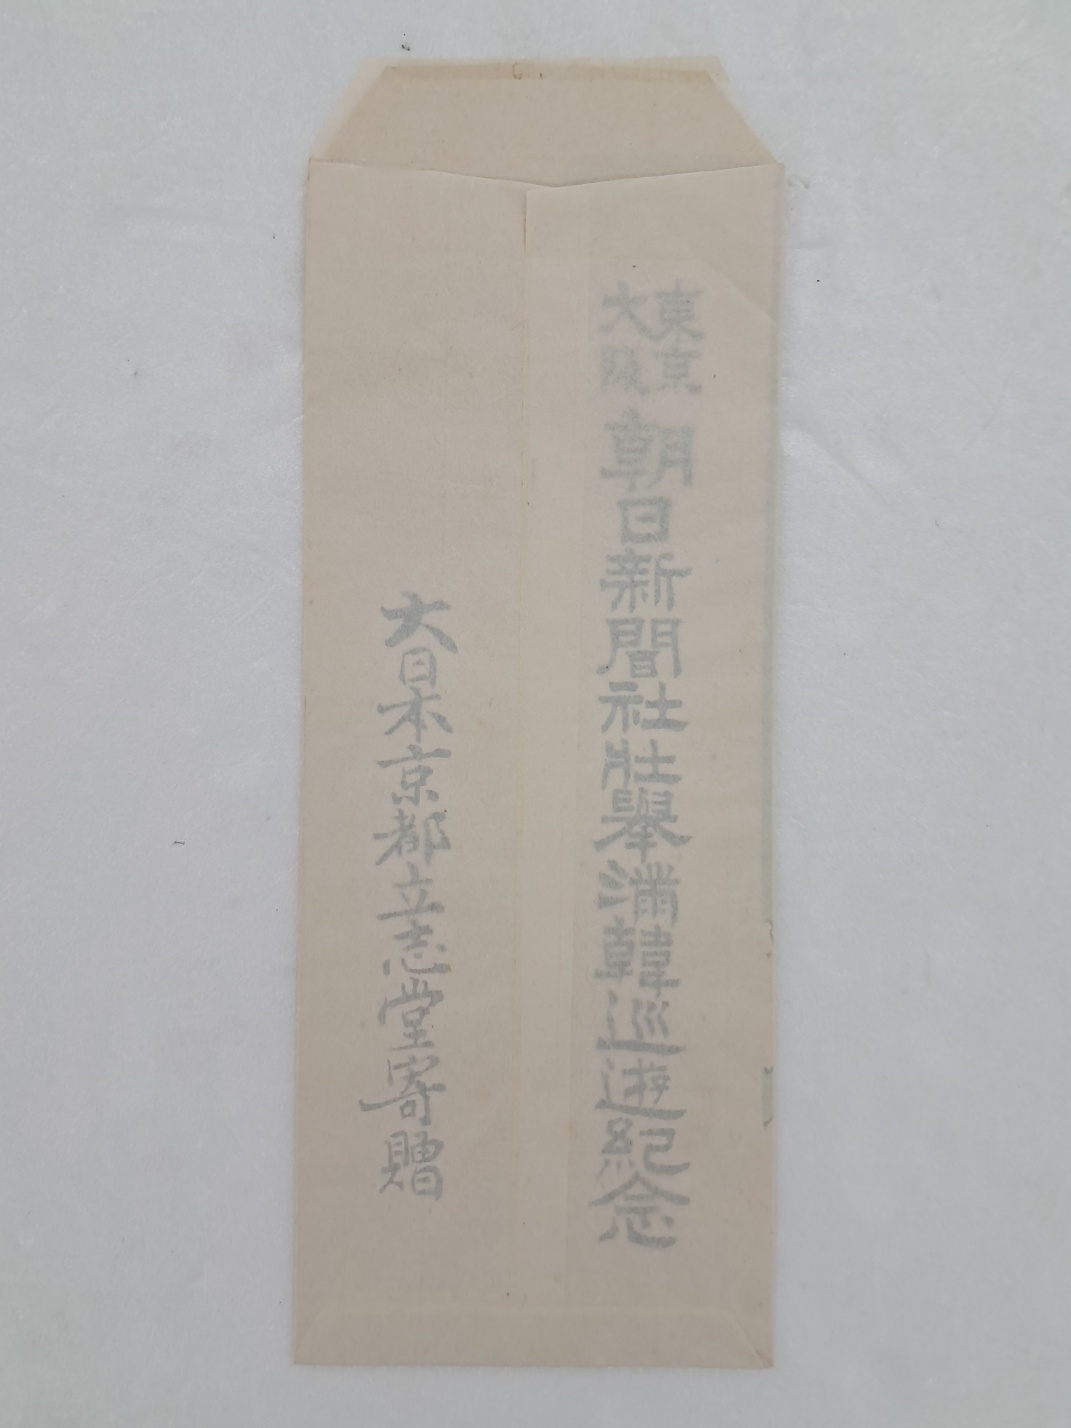 東京
大阪
朝日新聞社壯舉滿韓巡遊紀念
大日本京都立志堂寄贈